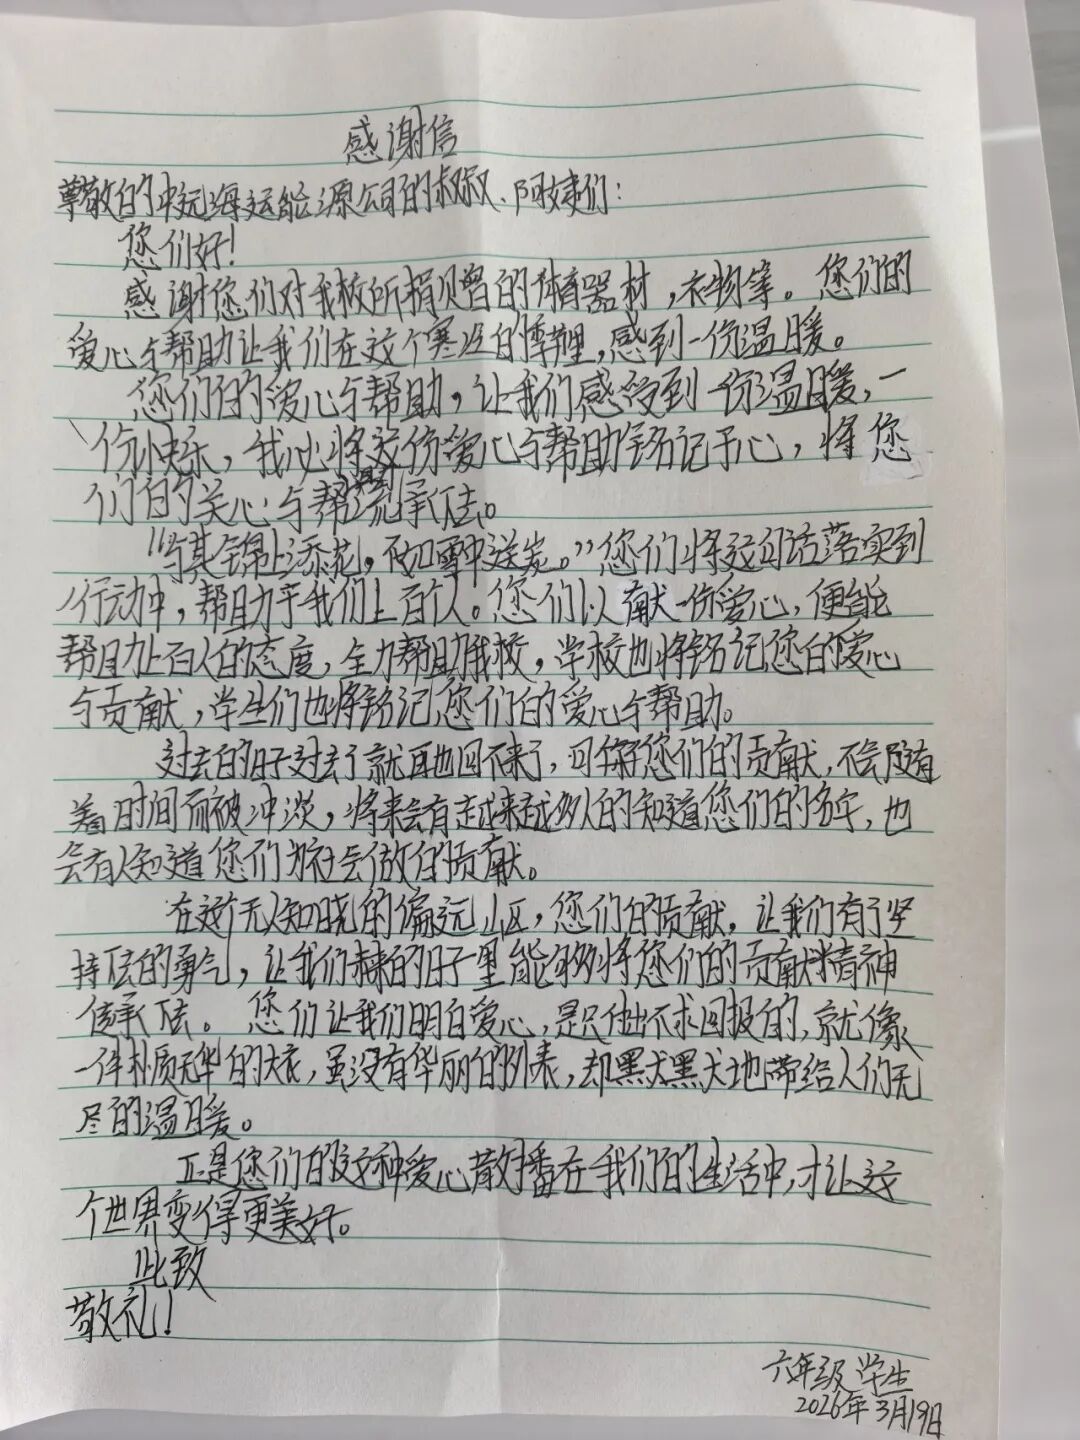 感谢信
尊敬的中远海运能源公司的叔叔、阿姨们：
您们好！
感谢您们对我校所捐赠的体育器材，衣物等。您们的
爱心与帮助让我们在这个寒冷的季节里，感到一份温暖。
您们的爱心与帮助，让我们感受到一份温暖，一
份快乐，我必将这份爱心与帮助铭记于心，将您
们的关心与帮流承下去。
“与其锦上添花，不如雪中送炭。”您们将这句话落实到
行动中，帮助于我们上百人。您们以献一份爱心，便能
帮助上百人的态度，全力帮助我校，学校也将铭记您的爱心
与贡献，学生们也将铭记您们的爱心与帮助。
过去的日子过去了就再也回不来了，可您们的贡献，不会随
着时间而被冲淡，将来会有越来越多人的知道您们的名字，也
会有人知道您们为社会做的贡献。
在这个无人知晓的偏远山区，您们的贡献，让我们有了坚
持下去的勇气，让我们未来的日子里能够将您们的贡献精神
传承下去。您们让我们明白爱心，是只付出不求回报的，就像
一件朴质无华的大衣，虽没有华丽的外表，却默默地带给人们无
尽的温暖。
正是您们的这种爱心散播在我们的生活中，才让这
个世界变得更美好。
此致
敬礼！
六年级学生
2026年3月19日